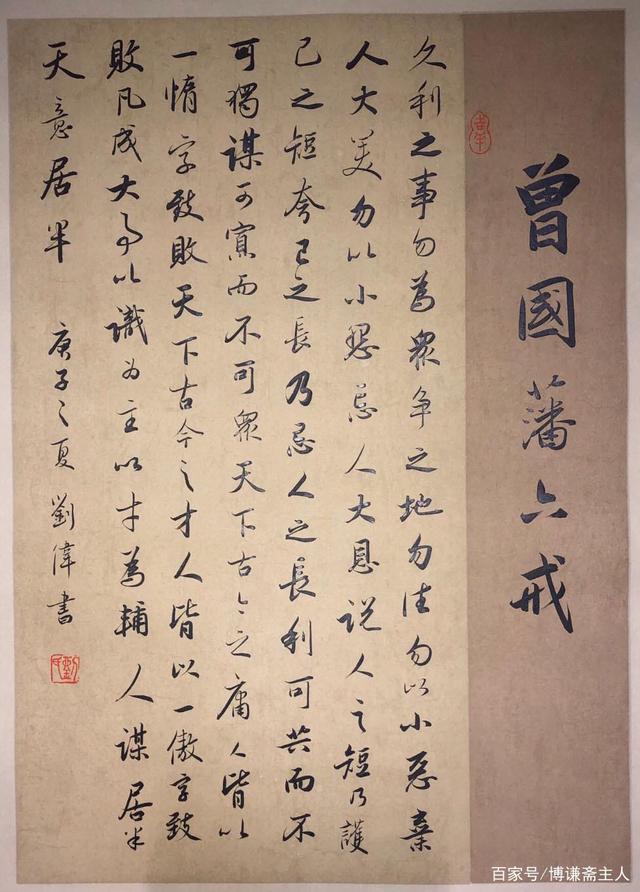 曾國藩六戒
久利之事勿為眾争之地勿往勿以小惡棄
人大美勿以小怨忘人大恩说人之短乃護
己之短夸己之長乃忌人之長利可共而不
可獨謀可寡而不可眾天下古今之庸人皆以
一惰字致敗天下古今之才人皆以一傲字致
敗凡成大事以識为主以才為輔人謀居半
天意居半 庚子之夏 劉偉書
百家号/博谦斋主人